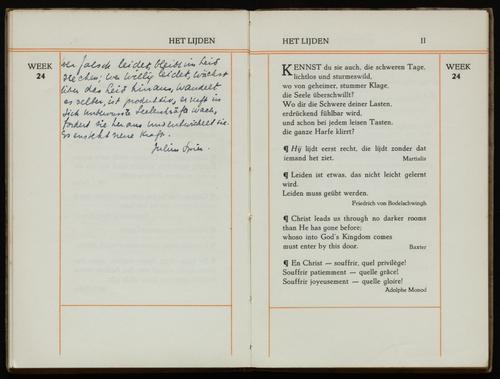 HET LIJDEN
WEEK
24
wer falsch leidet, bleibt im Leid
stecken; wer willig leidet, wächst
über das Leid hinaus, wandelt
es selber, ist produktiv, es ruft in
sich unbewusste Seelenkräfte wach,
fordert sie heraus und entwickelt sie.
Es entsteht neue Kraft.
Julius Spier.
HET LIJDEN II
WEEK
24
KENNST du sie auch, die schweren Tage,
lichtlos und sturmeswild,
wo von geheimer, stummer Klage,
die Seele überschwillt?
Wo dir die Schwere deiner Lasten,
erdrückend fühlbar wird,
und schon bei jedem leisen Tasten,
die ganze Harfe klirrt?
¶ Hij lijdt eerst recht, die lijdt zonder dat
iemand het ziet. Martialis
¶ Leiden ist etwas, das nicht leicht gelernt
wird.
Leiden muss geübt werden.
Friedrich von Bodelschwingh
¶ Christ leads us through no darker rooms
than He has gone before;
whoso into God's Kingdom comes
must enter by this door. Baxter
¶ En Christ — souffrir, quel privilège!
Souffrir patiemment — quelle grâce!
Souffrir joyeusement — quelle gloire!
Adolphe Monod